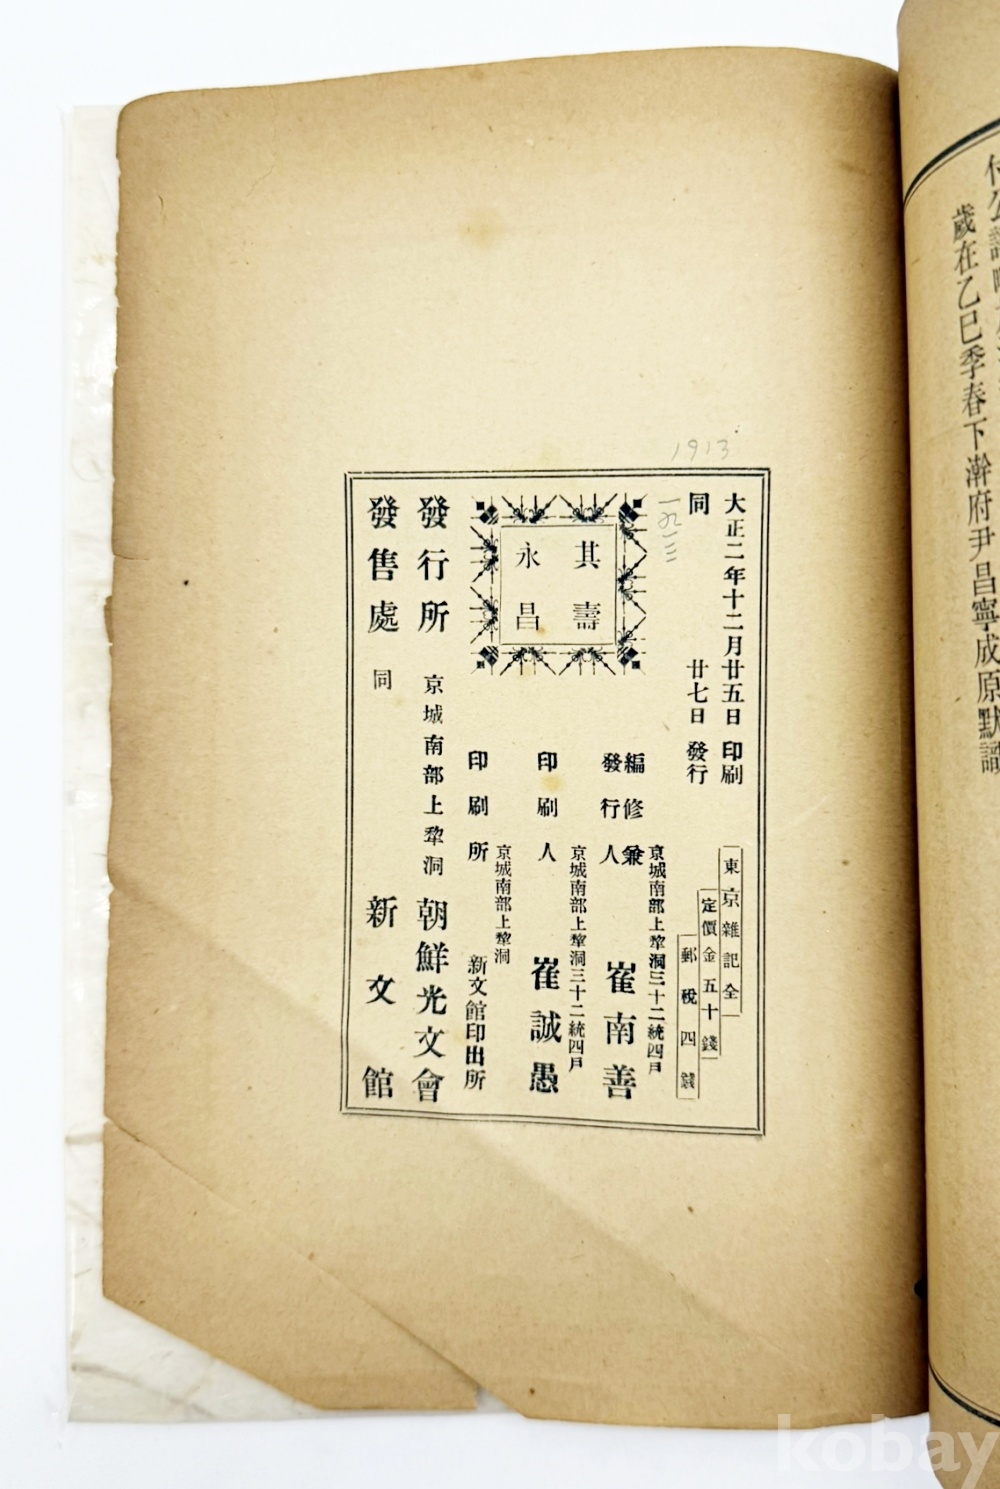 歲在乙巳季春下澣府尹昌寧成原默識
1913
一九一三
大正二年十二月廿五日印刷
同 廿七日發行
東京雜記全
定價金五十錢
郵稅四錢
其壽
永昌
編修兼
發行人
京城南部上犂洞三十二統四戶
崔南善
印刷人
京城南部上犂洞三十二統四戶
崔誠愚
印刷所
京城南部上犂洞
新文館印出所
發行所 京城南部上犂洞 朝鮮光文會
發售處 同 新文館
kobay